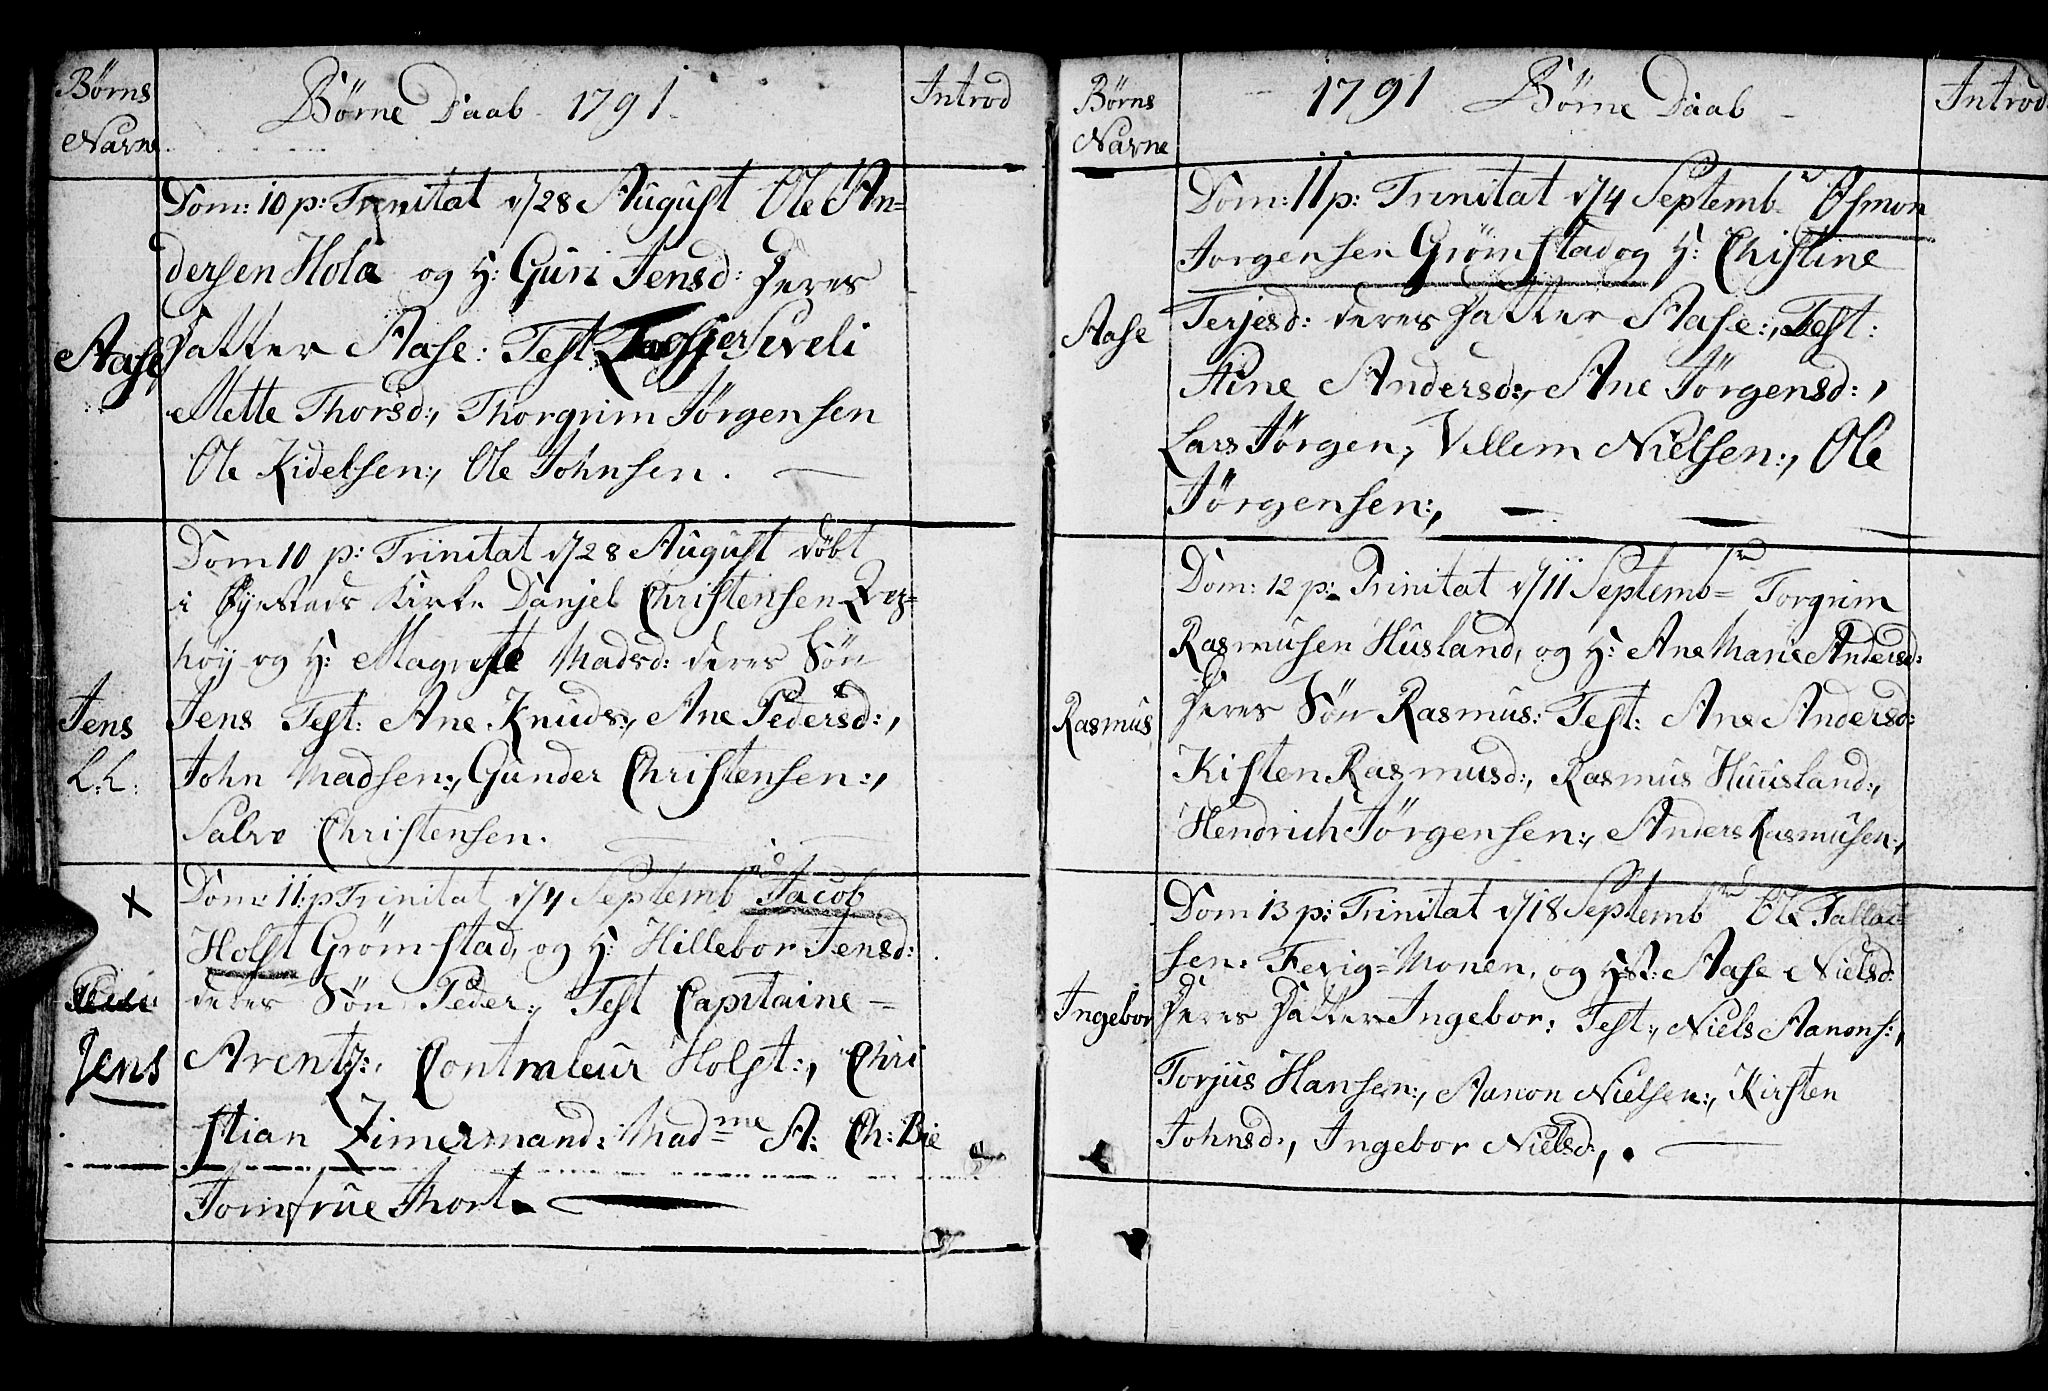 Børns
Navne
Børne Daab 1791
Introd
Dom: 10 p: Trinitat d/28 August Ole An=
dersen Hola og H: Guri Jensd: Deres
Aase
Datter Aase: Test: Seveli
Mette Thorsd:, Thorgrim Jørgensen
Ole Kidelsen:, Ole Johnsen.
Dom 10 p: Trinitat d/28 August døbt
i Øyestads Kirke Danjel Christensen
høy og H: Magrete Madsd: deres Søn
Jens
Jens Test: Ane Knuds:, Ane Pedersd:,
L: L:
John Madsen:, Gunder Christensen:,
Salve Christensen.
x
Dom: 11: p Trinitat d/4 Septembr Jacob
Holst Grømstad, og H: Hillebor Jensd:
deres Søn Peder:, Test Capitaine
Jens
Arentz:, Contraleur Holst:, Chri
stian Zimermand: Madme A: Ch: Bie
Jomfrue Thort.
Børns
Navne
1791 Børne Daab
Introd
Dom: 11 p: Trinitat d/4 Septembr Osmon
Jorgensen Grømstad og H: Christine
Aase
Terjesd: deres Datter Aase:, Test:
Stine Andersd:, Ane Jørgensd:,
Lars Jørgen:, Villem Nielsen:, Ole
Jørgensen:,
Dom: 12 p: Trinitat d/11 Septembr Torgrim
Rasmusen Husland, og H: Ane Marie Andersd:
Rasmus
Deres Søn Rasmus: Test: Ane Andersd:
Kisten Rasmusd:, Rasmus Huusland:,
Hendrich Jørgensen:, Anders Rasmusen:,
Dom 13 p: Trinitat d/18 Septembr Ole Tallac
sen: Fevig=Monen, og Hst: Aase Nielsd:
Ingebor
Deres Datter Ingebor: Test:, Niels Aanons:,
Torjus Hansen:, Aanon Nielsen:, Kirsten
Johnsd:, Ingebor Nielsd:,.